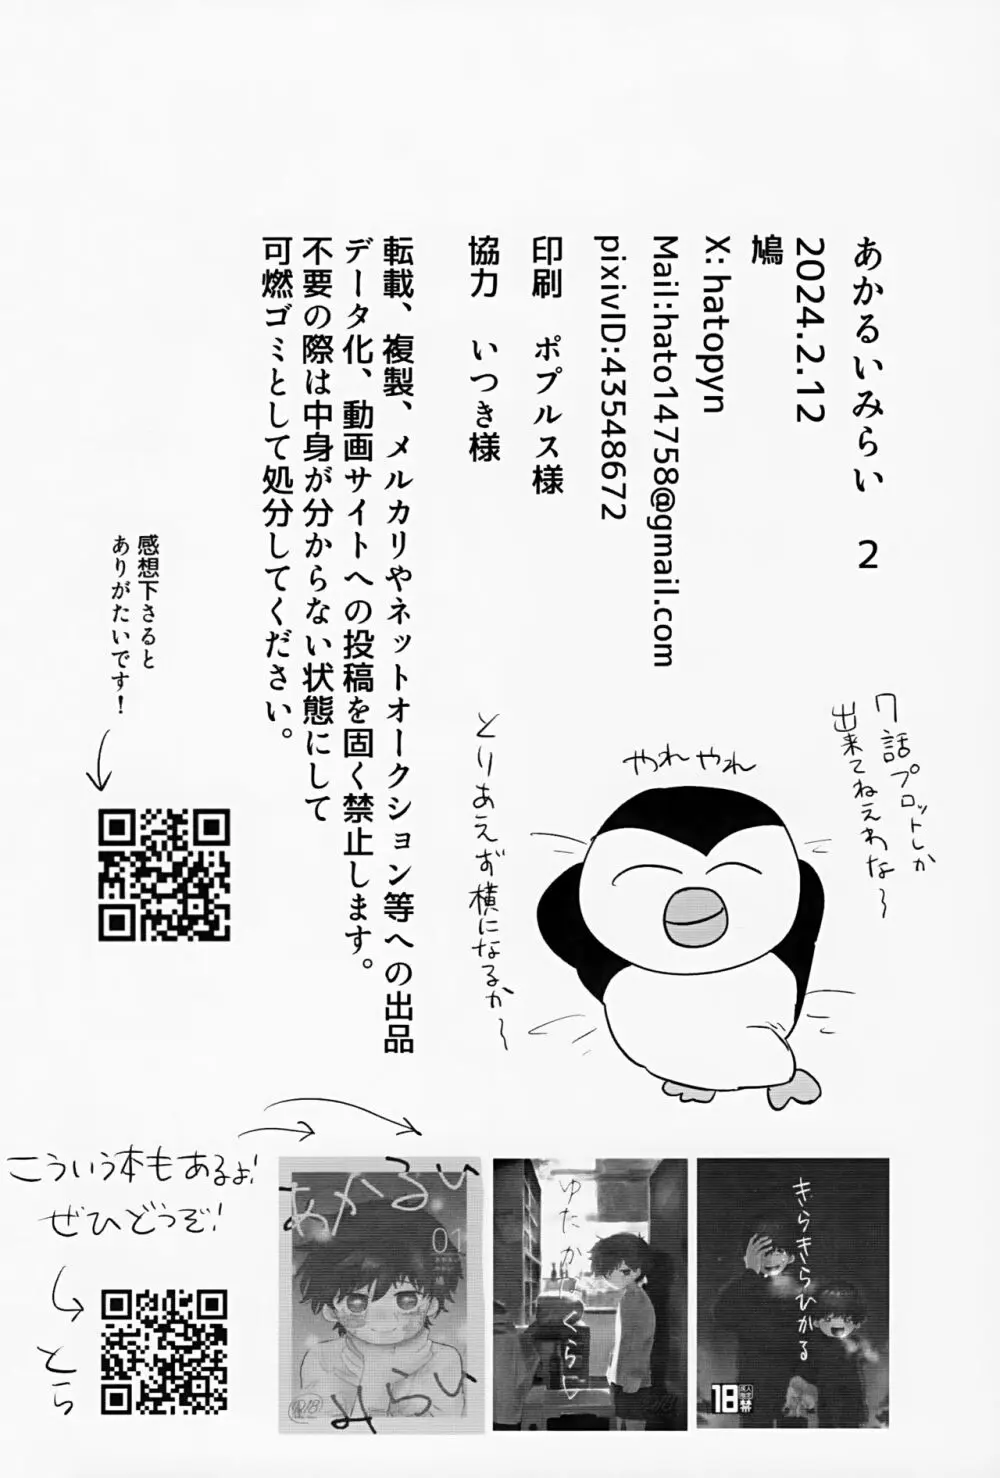 あかるいみらい 2
2024.2.12
鳩
X: hatopyn
Mail:hato14758@gmail.com
pixivID:43548672
印刷 ポプルス様
協力 いつき様
転載、複製、メルカリやネットオークション等への出品
データ化、動画サイトへの投稿を固く禁止します。
不要の際は中身が分からない状態にして
可燃ゴミとして処分してください。
感想下さると
ありがたいです！
7話プロットしか
出来てねえわな〜
やれやれ
とりあえず横になるか〜
こういう本もあるよ！
ぜひどうぞ！
とら
あかるい
01
みらい
R18
ゆたかなくらし
きらきらひかる
18
禁